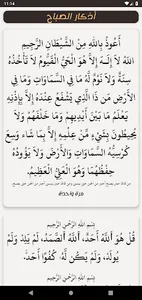 11:14
أذكار الصباح
أَعُوذُ بِاللهِ مِنْ الشَّيْطَانِ الرَّجِيمِ
اللّهُ لاَ إِلَـهَ إِلاَّ هُوَ الْحَيُّ الْقَيُّومُ لاَ تَأْخُذُهُ
سِنَةٌ وَلاَ نَوْمٌ لَّهُ مَا فِي السَّمَاوَاتِ وَمَا فِي
الأَرْضِ مَن ذَا الَّذِي يَشْفَعُ عِنْدَهُ إِلاَّ بِإِذْنِهِ
يَعْلَمُ مَا بَيْنَ أَيْدِيهِمْ وَمَا خَلْفَهُمْ وَلاَ
يُحِيطُونَ بِشَيْءٍ مِّنْ عِلْمِهِ إِلاَّ بِمَا شَاء وَسِعَ
كُرْسِيُّهُ السَّمَاوَاتِ وَالأَرْضَ وَلاَ يَؤُودُهُ
حِفْظُهُمَا وَهُوَ الْعَلِيُّ الْعَظِيمُ.
مرة واحدة
بِسْمِ اللهِ الرَّحْمنِ الرَّحِيم
قُلْ هُوَ اللَّهُ أَحَدٌ، اللَّهُ الصَّمَدُ، لَمْ يَلِدْ وَلَمْ
يُولَدْ، وَلَمْ يَكُن لَّهُ كُفُوًا أَحَدٌ.
بِسْمِ اللهِ الرَّحْمنِ الرَّحِيم